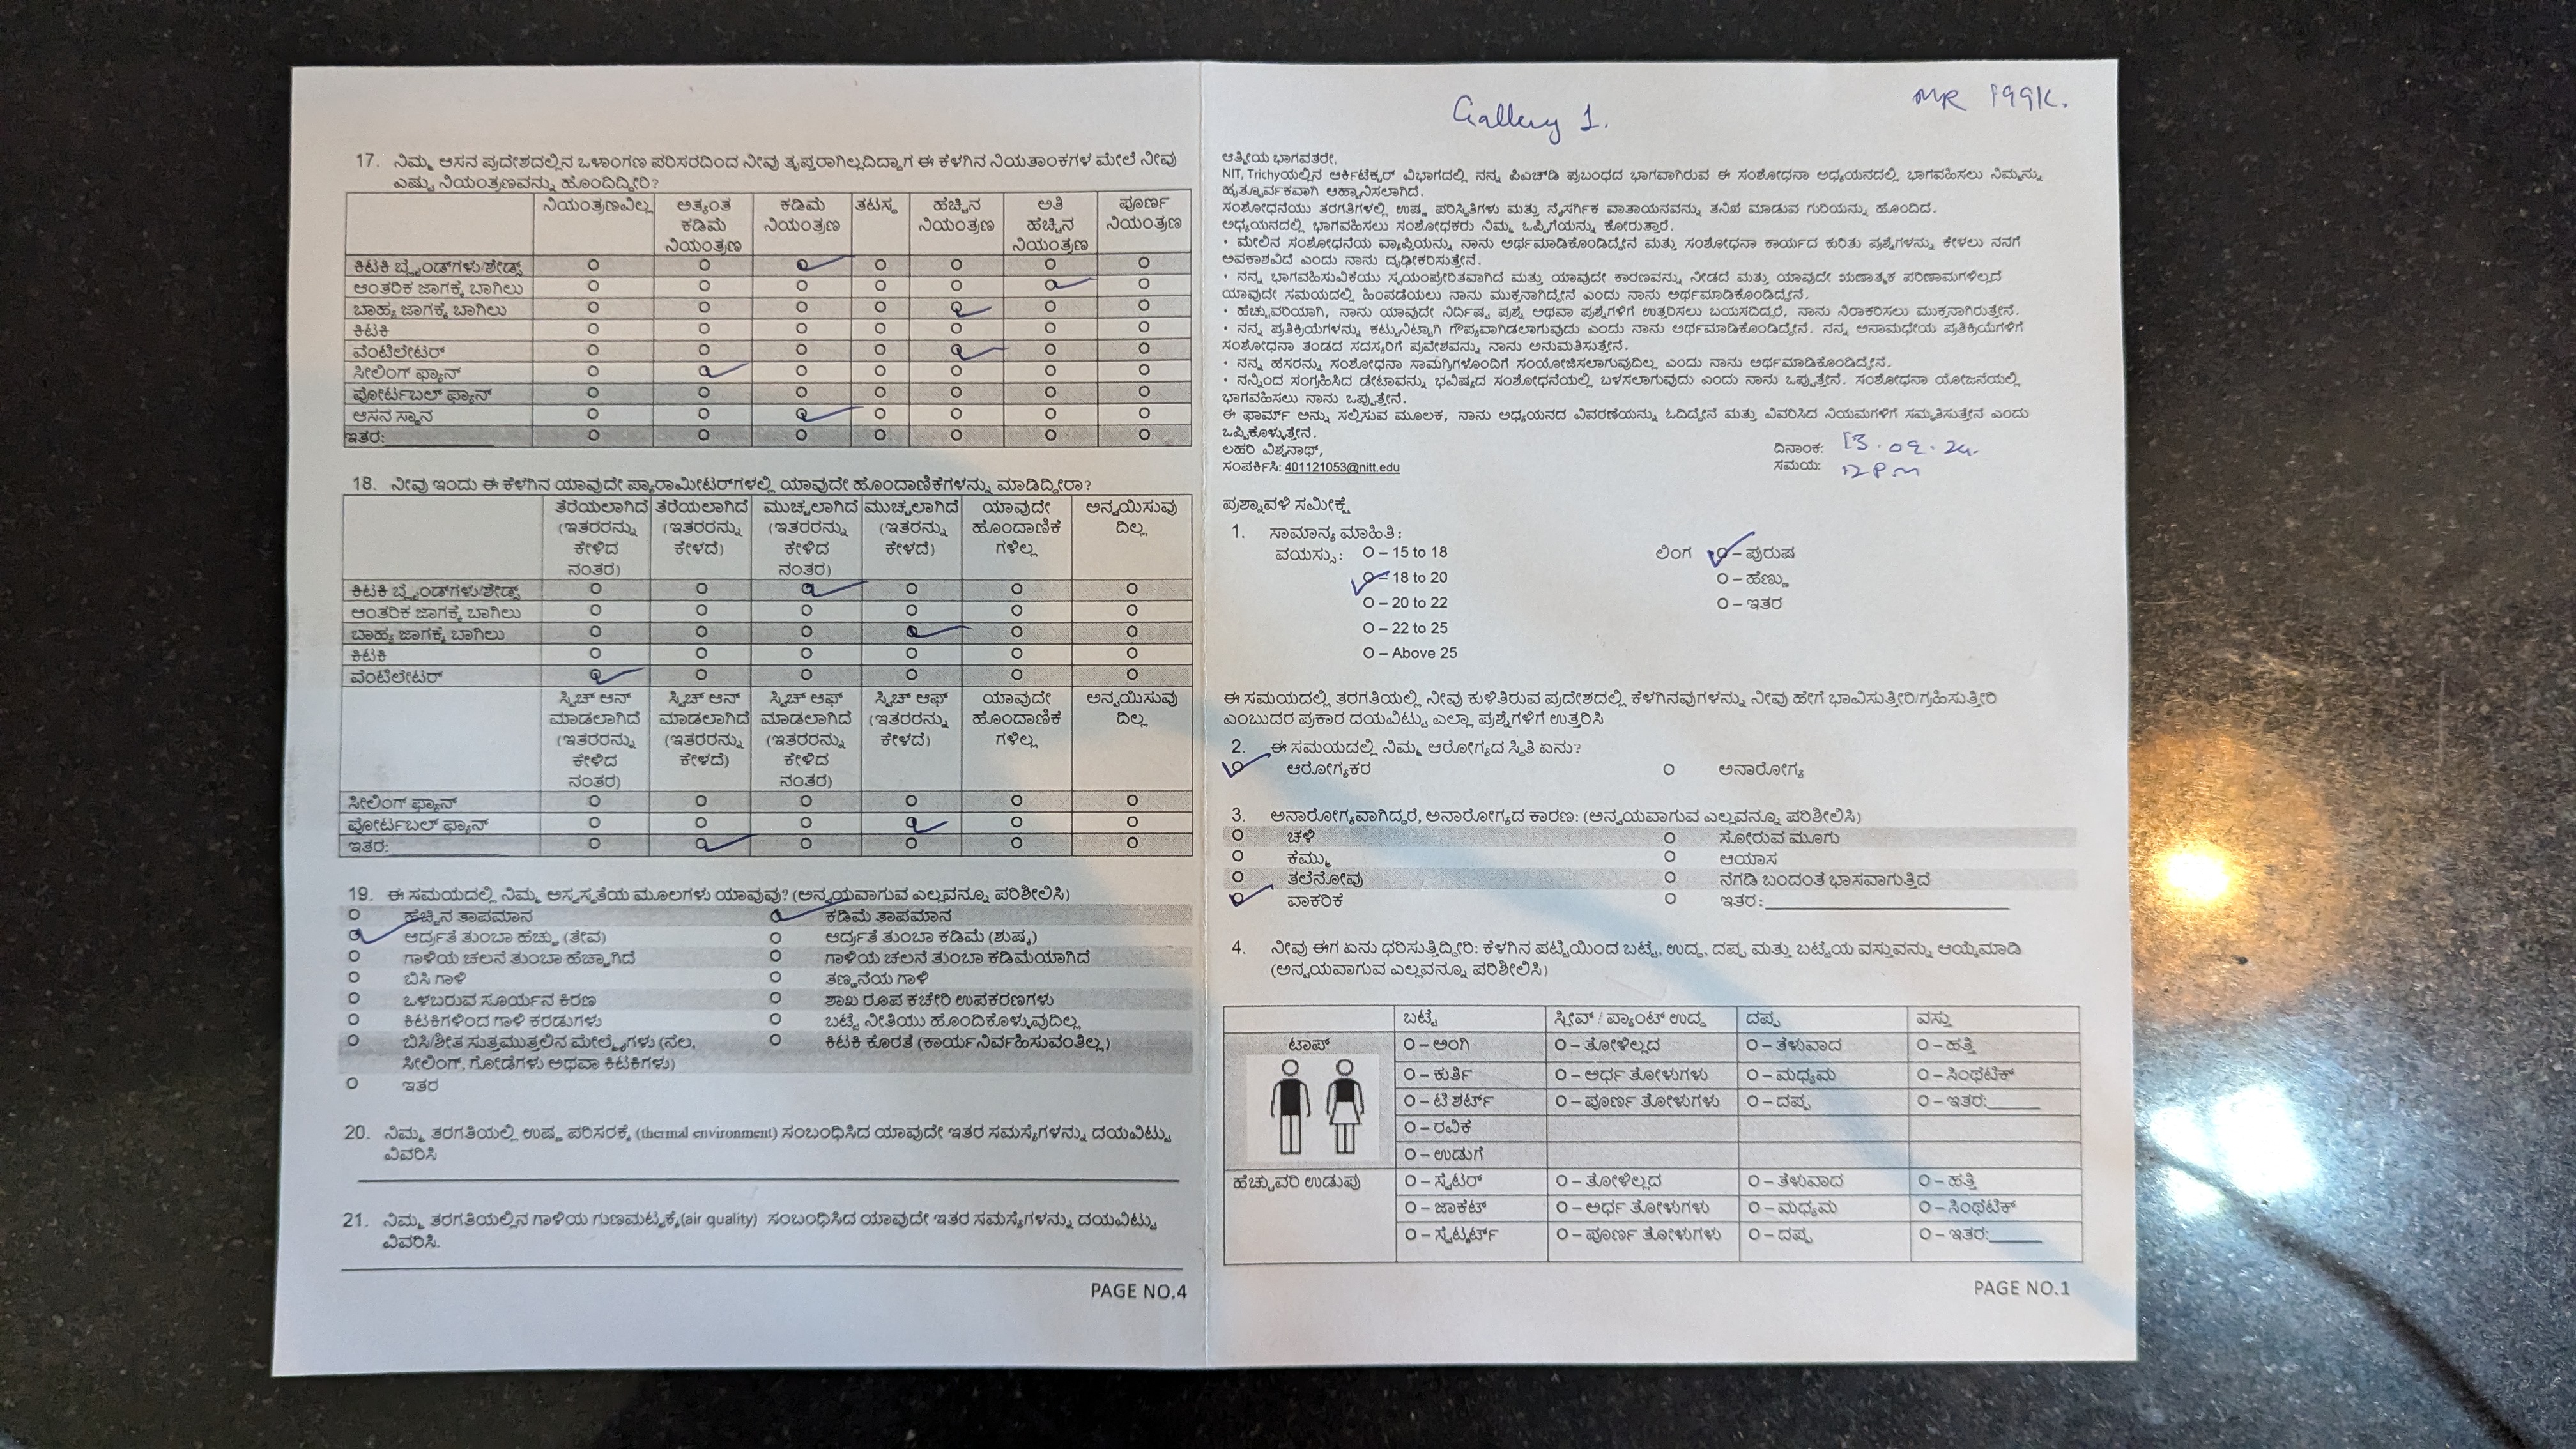 17. ನಿಮ್ಮ ಆಸನ ಪ್ರದೇಶದಲ್ಲಿನ ಒಳಾಂಗಣ ಪರಿಸರದಿಂದ ನೀವು ತೃಪ್ತರಾಗಿಲ್ಲದಿದ್ದಾಗ ಈ ಕೆಳಗಿನ ನಿಯತಾಂಕಗಳ ಮೇಲೆ ನೀವು
ಎಷ್ಟು ನಿಯಂತ್ರಣವನ್ನು ಹೊಂದಿದ್ದೀರಿ?
ನಿಯಂತ್ರಣವಿಲ್ಲ ಅತ್ಯಂತ ಕಡಿಮೆ ನಿಯಂತ್ರಣ ಕಡಿಮೆ ನಿಯಂತ್ರಣ ತಟಸ್ಥ ಹೆಚ್ಚಿನ ನಿಯಂತ್ರಣ ಅತಿ ಹೆಚ್ಚಿನ ನಿಯಂತ್ರಣ ಪೂರ್ಣ ನಿಯಂತ್ರಣ
ಕಿಟಕಿ ಬ್ಲೈಂಡ್‌ಗಳು/ಶೇಡ್ಸ್ O O O O O O O
ಆಂತರಿಕ ಜಾಗಕ್ಕೆ ಬಾಗಿಲು O O O O O O O
ಬಾಹ್ಯ ಜಾಗಕ್ಕೆ ಬಾಗಿಲು O O O O O O O
ಕಿಟಕಿ O O O O O O O
ವೆಂಟಿಲೇಟರ್ O O O O O O O
ಸೀಲಿಂಗ್ ಫ್ಯಾನ್ O O O O O O O
ಪೋರ್ಟಬಲ್ ಫ್ಯಾನ್ O O O O O O O
ಆಸನ ಸ್ಥಾನ O O O O O O O
ಇತರ: O O O O O O O
18. ನೀವು ಇಂದು ಈ ಕೆಳಗಿನ ಯಾವುದೇ ಪ್ಯಾರಾಮೀಟರ್‌ಗಳಲ್ಲಿ ಯಾವುದೇ ಹೊಂದಾಣಿಕೆಗಳನ್ನು ಮಾಡಿದ್ದೀರಾ?
ತೆರೆಯಲಾಗಿದೆ (ಇತರರನ್ನು ಕೇಳಿದ ನಂತರ) ತೆರೆಯಲಾಗಿದೆ (ಇತರರನ್ನು ಕೇಳದೆ) ಮುಚ್ಚಲಾಗಿದೆ (ಇತರರನ್ನು ಕೇಳಿದ ನಂತರ) ಮುಚ್ಚಲಾಗಿದೆ (ಇತರರನ್ನು ಕೇಳದೆ) ಯಾವುದೇ ಹೊಂದಾಣಿಕೆ ಗಳಿಲ್ಲ ಅನ್ವಯಿಸುವು ದಿಲ್ಲ
ಕಿಟಕಿ ಬ್ಲೈಂಡ್‌ಗಳು/ಶೇಡ್ಸ್ O O O O O O
ಆಂತರಿಕ ಜಾಗಕ್ಕೆ ಬಾಗಿಲು O O O O O O
ಬಾಹ್ಯ ಜಾಗಕ್ಕೆ ಬಾಗಿಲು O O O O O O
ಕಿಟಕಿ O O O O O O
ವೆಂಟಿಲೇಟರ್ O O O O O O
ಸ್ವಿಚ್ ಆನ್ ಮಾಡಲಾಗಿದೆ (ಇತರರನ್ನು ಕೇಳಿದ ನಂತರ) ಸ್ವಿಚ್ ಆನ್ ಮಾಡಲಾಗಿದೆ (ಇತರರನ್ನು ಕೇಳದೆ) ಸ್ವಿಚ್ ಆಫ್ ಮಾಡಲಾಗಿದೆ (ಇತರರನ್ನು ಕೇಳಿದ ನಂತರ) ಸ್ವಿಚ್ ಆಫ್ (ಇತರರನ್ನು ಕೇಳದೆ) ಯಾವುದೇ ಹೊಂದಾಣಿಕೆ ಗಳಿಲ್ಲ ಅನ್ವಯಿಸುವು ದಿಲ್ಲ
ಸೀಲಿಂಗ್ ಫ್ಯಾನ್ O O O O O O
ಪೋರ್ಟಬಲ್ ಫ್ಯಾನ್ O O O O O O
ಇತರ: O O O O O O
19. ಈ ಸಮಯದಲ್ಲಿ ನಿಮ್ಮ ಅಸ್ವಸ್ಥತೆಯ ಮೂಲಗಳು ಯಾವುವು? (ಅನ್ವಯವಾಗುವ ಎಲ್ಲವನ್ನೂ ಪರಿಶೀಲಿಸಿ)
O ಹೆಚ್ಚಿನ ತಾಪಮಾನ O ಕಡಿಮೆ ತಾಪಮಾನ
O ಆರ್ದ್ರತೆ ತುಂಬಾ ಹೆಚ್ಚು (ತೇವ) O ಆರ್ದ್ರತೆ ತುಂಬಾ ಕಡಿಮೆ (ಶುಷ್ಕ)
O ಗಾಳಿಯ ಚಲನೆ ತುಂಬಾ ಹೆಚ್ಚಾಗಿದೆ O ಗಾಳಿಯ ಚಲನೆ ತುಂಬಾ ಕಡಿಮೆಯಾಗಿದೆ
O ಬಿಸಿ ಗಾಳಿ O ತಣ್ಣನೆಯ ಗಾಳಿ
O ಒಳಬರುವ ಸೂರ್ಯನ ಕಿರಣ O ಶಾಖ ರೂಪ ಕಚೇರಿ ಉಪಕರಣಗಳು
O ಕಿಟಕಿಗಳಿಂದ ಗಾಳಿ ಕರಡುಗಳು O ಬಟ್ಟೆ ನೀತಿಯು ಹೊಂದಿಕೊಳ್ಳುವುದಿಲ್ಲ
O ಬಿಸಿ/ಶೀತ ಸುತ್ತಮುತ್ತಲಿನ ಮೇಲ್ಮೈಗಳು (ನೆಲ, O ಕಿಟಕಿ ಕೊರತೆ (ಕಾರ್ಯನಿರ್ವಹಿಸುವಂತಿಲ್ಲ)
ಸೀಲಿಂಗ್, ಗೋಡೆಗಳು ಅಥವಾ ಕಿಟಕಿಗಳು)
O ಇತರ
20. ನಿಮ್ಮ ತರಗತಿಯಲ್ಲಿ ಉಷ್ಣ ಪರಿಸರಕ್ಕೆ (thermal environment) ಸಂಬಂಧಿಸಿದ ಯಾವುದೇ ಇತರ ಸಮಸ್ಯೆಗಳನ್ನು ದಯವಿಟ್ಟು
ವಿವರಿಸಿ
21. ನಿಮ್ಮ ತರಗತಿಯಲ್ಲಿನ ಗಾಳಿಯ ಗುಣಮಟ್ಟಕ್ಕೆ(air quality) ಸಂಬಂಧಿಸಿದ ಯಾವುದೇ ಇತರ ಸಮಸ್ಯೆಗಳನ್ನು ದಯವಿಟ್ಟು
ವಿವರಿಸಿ.
PAGE NO.4
Gallery 1.
MR 199K.
ಆತ್ಮೀಯ ಭಾಗವತರೇ,
NIT, Trichyಯಲ್ಲಿನ ಆರ್ಕಿಟೆಕ್ಚರ್ ವಿಭಾಗದಲ್ಲಿ ನನ್ನ ಪಿಎಚ್‌ಡಿ ಪ್ರಬಂಧದ ಭಾಗವಾಗಿರುವ ಈ ಸಂಶೋಧನಾ ಅಧ್ಯಯನದಲ್ಲಿ ಭಾಗವಹಿಸಲು ನಿಮ್ಮನ್ನು
ಹೃತ್ಪೂರ್ವಕವಾಗಿ ಆಹ್ವಾನಿಸಲಾಗಿದೆ.
ಸಂಶೋಧನೆಯು ತರಗತಿಗಳಲ್ಲಿ ಉಷ್ಣ ಪರಿಸ್ಥಿತಿಗಳು ಮತ್ತು ನೈಸರ್ಗಿಕ ವಾತಾಯನವನ್ನು ತನಿಖೆ ಮಾಡುವ ಗುರಿಯನ್ನು ಹೊಂದಿದೆ.
ಅಧ್ಯಯನದಲ್ಲಿ ಭಾಗವಹಿಸಲು ಸಂಶೋಧಕರು ನಿಮ್ಮ ಒಪ್ಪಿಗೆಯನ್ನು ಕೋರುತ್ತಾರೆ.
• ಮೇಲಿನ ಸಂಶೋಧನೆಯ ವ್ಯಾಪ್ತಿಯನ್ನು ನಾನು ಅರ್ಥಮಾಡಿಕೊಂಡಿದ್ದೇನೆ ಮತ್ತು ಸಂಶೋಧನಾ ಕಾರ್ಯದ ಕುರಿತು ಪ್ರಶ್ನೆಗಳನ್ನು ಕೇಳಲು ನನಗೆ
ಅವಕಾಶವಿದೆ ಎಂದು ನಾನು ದೃಢೀಕರಿಸುತ್ತೇನೆ.
• ನನ್ನ ಭಾಗವಹಿಸುವಿಕೆಯು ಸ್ವಯಂಪ್ರೇರಿತವಾಗಿದೆ ಮತ್ತು ಯಾವುದೇ ಕಾರಣವನ್ನು ನೀಡದೆ ಮತ್ತು ಯಾವುದೇ ಋಣಾತ್ಮಕ ಪರಿಣಾಮಗಳಿಲ್ಲದೆ
ಯಾವುದೇ ಸಮಯದಲ್ಲಿ ಹಿಂಪಡೆಯಲು ನಾನು ಮುಕ್ತನಾಗಿದ್ದೇನೆ ಎಂದು ನಾನು ಅರ್ಥಮಾಡಿಕೊಂಡಿದ್ದೇನೆ.
• ಹೆಚ್ಚುವರಿಯಾಗಿ, ನಾನು ಯಾವುದೇ ನಿರ್ದಿಷ್ಟ ಪ್ರಶ್ನೆ ಅಥವಾ ಪ್ರಶ್ನೆಗಳಿಗೆ ಉತ್ತರಿಸಲು ಬಯಸದಿದ್ದರೆ, ನಾನು ನಿರಾಕರಿಸಲು ಮುಕ್ತನಾಗಿರುತ್ತೇನೆ.
• ನನ್ನ ಪ್ರತಿಕ್ರಿಯೆಗಳನ್ನು ಕಟ್ಟುನಿಟ್ಟಾಗಿ ಗೌಪ್ಯವಾಗಿಡಲಾಗುವುದು ಎಂದು ನಾನು ಅರ್ಥಮಾಡಿಕೊಂಡಿದ್ದೇನೆ. ನನ್ನ ಅನಾಮಧೇಯ ಪ್ರತಿಕ್ರಿಯೆಗಳಿಗೆ
ಸಂಶೋಧನಾ ತಂಡದ ಸದಸ್ಯರಿಗೆ ಪ್ರವೇಶವನ್ನು ನಾನು ಅನುಮತಿಸುತ್ತೇನೆ.
• ನನ್ನ ಹೆಸರನ್ನು ಸಂಶೋಧನಾ ಸಾಮಗ್ರಿಗಳೊಂದಿಗೆ ಸಂಯೋಜಿಸಲಾಗುವುದಿಲ್ಲ ಎಂದು ನಾನು ಅರ್ಥಮಾಡಿಕೊಂಡಿದ್ದೇನೆ.
• ನನ್ನಿಂದ ಸಂಗ್ರಹಿಸಿದ ಡೇಟಾವನ್ನು ಭವಿಷ್ಯದ ಸಂಶೋಧನೆಯಲ್ಲಿ ಬಳಸಲಾಗುವುದು ಎಂದು ನಾನು ಒಪ್ಪುತ್ತೇನೆ. ಸಂಶೋಧನಾ ಯೋಜನೆಯಲ್ಲಿ
ಭಾಗವಹಿಸಲು ನಾನು ಒಪ್ಪುತ್ತೇನೆ.
ಈ ಫಾರ್ಮ್ ಅನ್ನು ಸಲ್ಲಿಸುವ ಮೂಲಕ, ನಾನು ಅಧ್ಯಯನದ ವಿವರಣೆಯನ್ನು ಓದಿದ್ದೇನೆ ಮತ್ತು ವಿವರಿಸಿದ ನಿಯಮಗಳಿಗೆ ಸಮ್ಮತಿಸುತ್ತೇನೆ ಎಂದು
ಒಪ್ಪಿಕೊಳ್ಳುತ್ತೇನೆ.
ಲಹರಿ ವಿಶ್ವನಾಥ್,
ಸಂಪರ್ಕಿಸಿ: 401121053@nitt.edu
ದಿನಾಂಕ: 13.09.24.
ಸಮಯ: 12 PM
ಪ್ರಶ್ನಾವಳಿ ಸಮೀಕ್ಷೆ
1. ಸಾಮಾನ್ಯ ಮಾಹಿತಿ:
ವಯಸ್ಸು: O – 15 to 18 ಲಿಂಗ O – ಪುರುಷ
O – 18 to 20 O – ಹೆಣ್ಣು
O – 20 to 22 O – ಇತರ
O – 22 to 25
O – Above 25
ಈ ಸಮಯದಲ್ಲಿ ತರಗತಿಯಲ್ಲಿ ನೀವು ಕುಳಿತಿರುವ ಪ್ರದೇಶದಲ್ಲಿ ಕೆಳಗಿನವುಗಳನ್ನು ನೀವು ಹೇಗೆ ಭಾವಿಸುತ್ತೀರಿ/ಗ್ರಹಿಸುತ್ತೀರಿ
ಎಂಬುದರ ಪ್ರಕಾರ ದಯವಿಟ್ಟು ಎಲ್ಲಾ ಪ್ರಶ್ನೆಗಳಿಗೆ ಉತ್ತರಿಸಿ
2. ಈ ಸಮಯದಲ್ಲಿ ನಿಮ್ಮ ಆರೋಗ್ಯದ ಸ್ಥಿತಿ ಏನು?
O ಆರೋಗ್ಯಕರ O ಅನಾರೋಗ್ಯ
3. ಅನಾರೋಗ್ಯವಾಗಿದ್ದರೆ, ಅನಾರೋಗ್ಯದ ಕಾರಣ: (ಅನ್ವಯವಾಗುವ ಎಲ್ಲವನ್ನೂ ಪರಿಶೀಲಿಸಿ)
O ಚಳಿ O ಸೋರುವ ಮೂಗು
O ಕೆಮ್ಮು O ಆಯಾಸ
O ತಲೆನೋವು O ನೆಗಡಿ ಬಂದಂತೆ ಭಾಸವಾಗುತ್ತಿದೆ
O ವಾಕರಿಕೆ O ಇತರ:
4. ನೀವು ಈಗ ಏನು ಧರಿಸುತ್ತಿದ್ದೀರಿ: ಕೆಳಗಿನ ಪಟ್ಟಿಯಿಂದ ಬಟ್ಟೆ, ಉದ್ದ, ದಪ್ಪ ಮತ್ತು ಬಟ್ಟೆಯ ವಸ್ತುವನ್ನು ಆಯ್ಕೆಮಾಡಿ
(ಅನ್ವಯವಾಗುವ ಎಲ್ಲವನ್ನೂ ಪರಿಶೀಲಿಸಿ)
ಬಟ್ಟೆ ಸ್ಲೀವ್ / ಪ್ಯಾಂಟ್ ಉದ್ದ ದಪ್ಪ ವಸ್ತು
ಟಾಪ್ O – ಅಂಗಿ O – ತೋಳಿಲ್ಲದ O – ತೆಳುವಾದ O – ಹತ್ತಿ
O – ಕುರ್ತಿ O – ಅರ್ಧ ತೋಳುಗಳು O – ಮಧ್ಯಮ O – ಸಿಂಥೆಟಿಕ್
O – ಟಿ ಶರ್ಟ್ O – ಪೂರ್ಣ ತೋಳುಗಳು O – ದಪ್ಪ O – ಇತರ:
O – ರವಿಕೆ
O – ಉಡುಗೆ
ಹೆಚ್ಚುವರಿ ಉಡುಪು O – ಸ್ವೆಟರ್ O – ತೋಳಿಲ್ಲದ O – ತೆಳುವಾದ O – ಹತ್ತಿ
O – ಜಾಕೆಟ್ O – ಅರ್ಧ ತೋಳುಗಳು O – ಮಧ್ಯಮ O – ಸಿಂಥೆಟಿಕ್
O – ಸ್ವೆಟ್ಶರ್ಟ್ O – ಪೂರ್ಣ ತೋಳುಗಳು O – ದಪ್ಪ O – ಇತರ:
PAGE NO.1